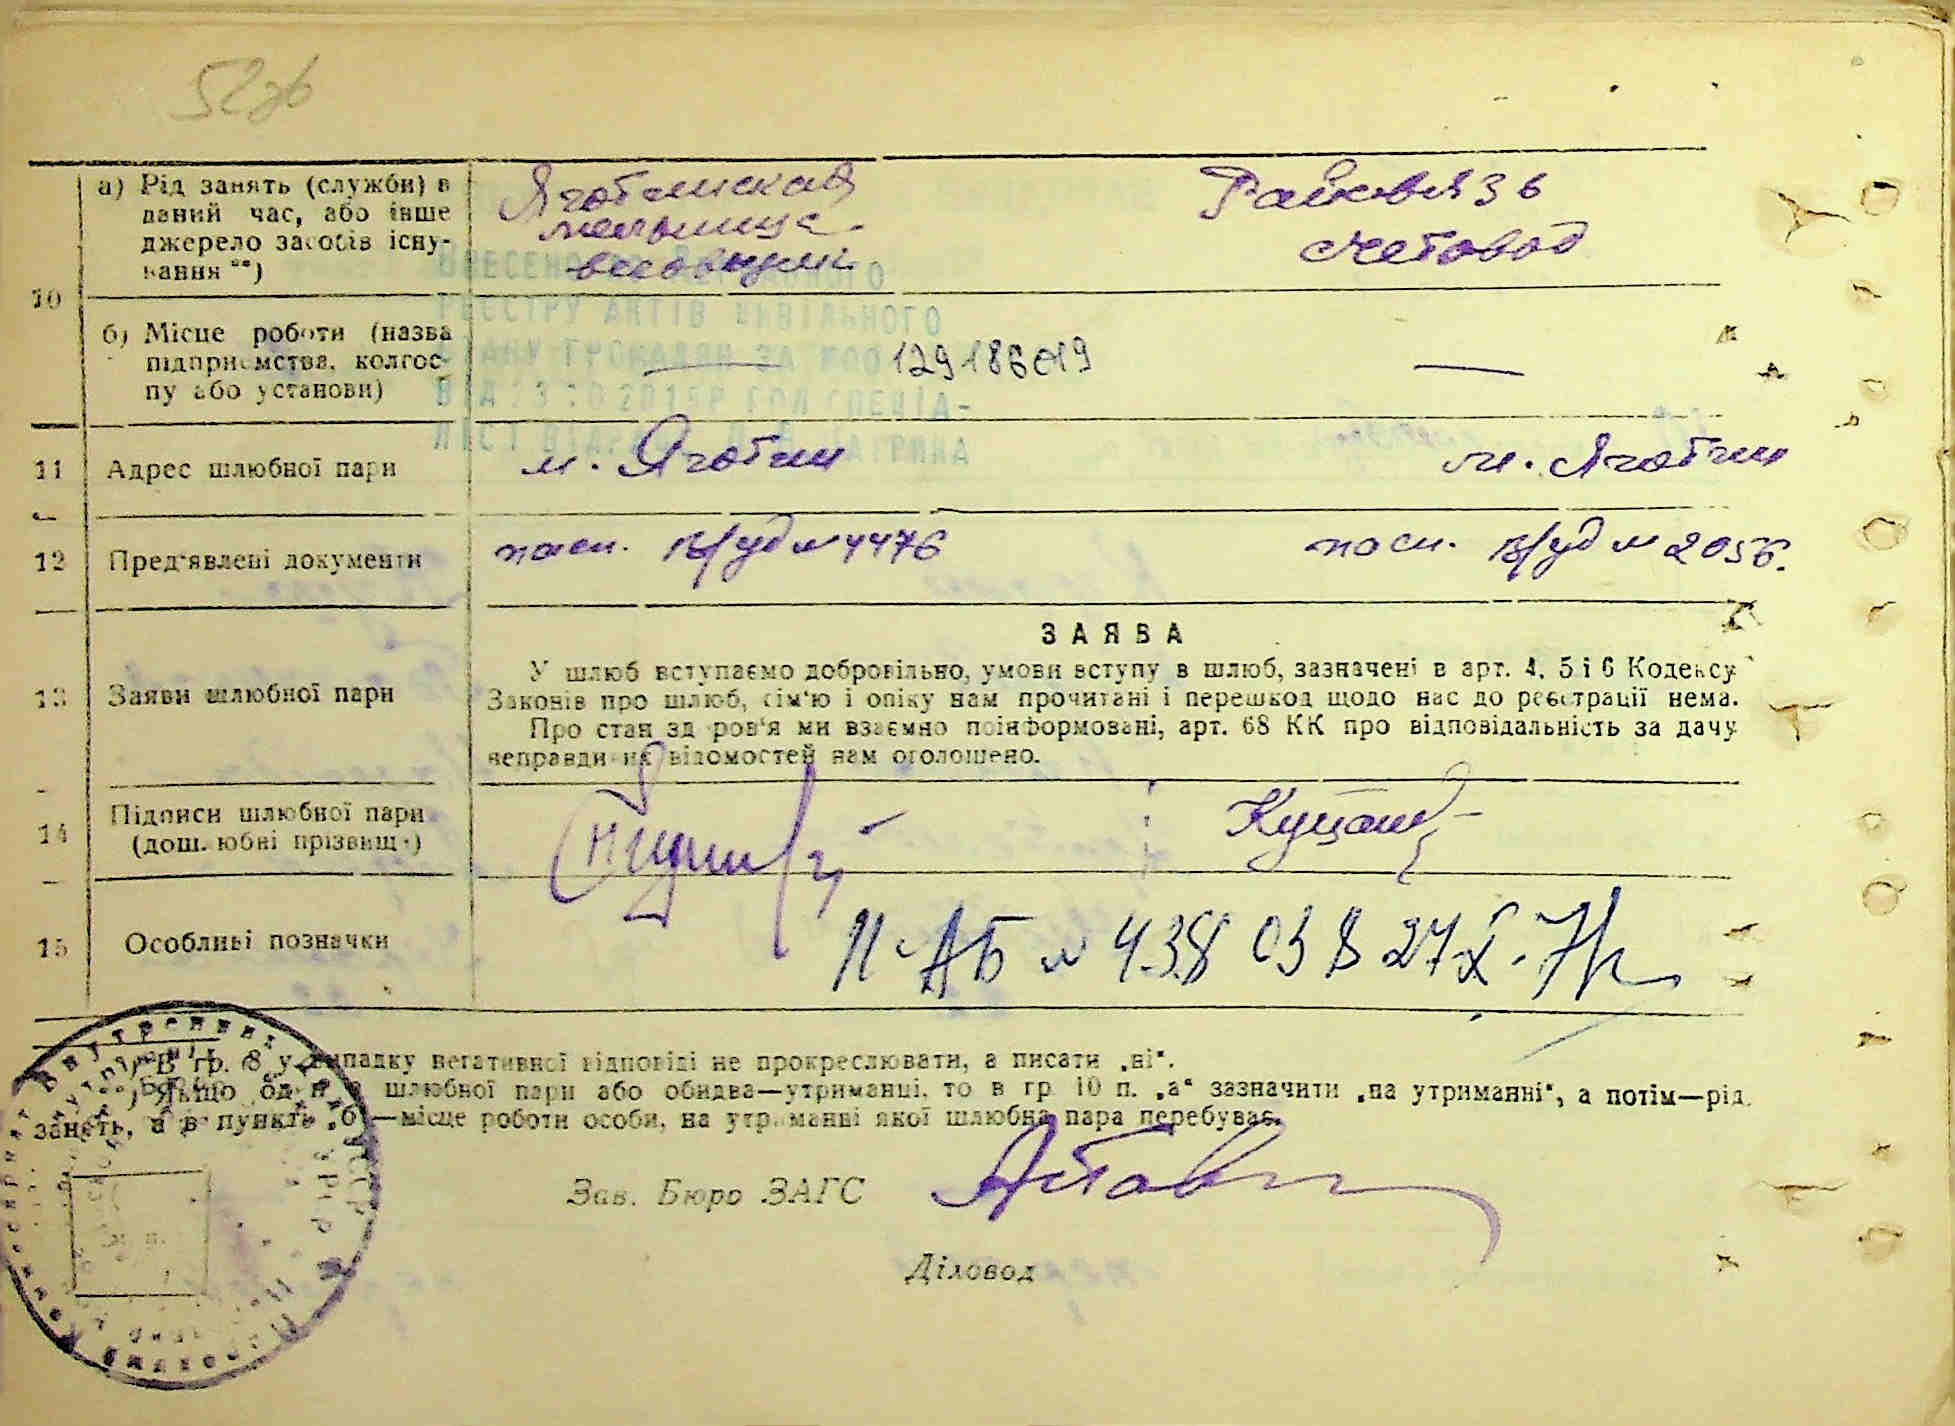 52зв
а) Рід занять (служби) в даний час, або інше джерело засобів існування **)
Яготинская
мельница
Райсвязь
счетовод
10
б) Місце роботи (назва підприємства, колгоспу або установи)
—
—
ВНЕСЕНО ДО ДЕРЖАВНОГО
РЕЄСТРУ АКТІВ ЦИВІЛЬНОГО
СТАНУ ГРОМАДЯН ЗА №00 129186019
ВІД 23 10 2015Р ГОЛ СПЕЦІА-
ЛІСТ
11 Адрес шлюбної пари
м. Яготин
м. Яготин
12 Пред'явлені документи
пасп. в/уд № 4476
пасп. в/уд № 2056.
13 Заяви шлюбної пари
ЗАЯВА
У шлюб вступаємо добровільно, умови вступу в шлюб, зазначені в арт. 4, 5 і 6 Кодексу
Законів про шлюб, сім'ю і опіку нам прочитані і перешкод щодо нас до реєстрації нема.
Про стан здоров'я ми взаємно поінформовані, арт. 68 КК про відповідальність за дачу
неправдивих відомостей нам оголошено.
14 Підписи шлюбної пари
(дошлюбні прізвища)
15 Особливі позначки
II-АБ № 438038 27-X-71г
*) В гр. 8 у випадку негативної відповіді не прокреслювати, а писати „ні".
**) Якщо один з шлюбної пари або обидва—утриманці, то в гр. 10 п. „а" зазначити „на утриманні", а потім—рід
занять, а в пункті „б"—місце роботи особи, на утриманні якої шлюбна пара перебуває.
Зав. Бюро ЗАГС
Діловод